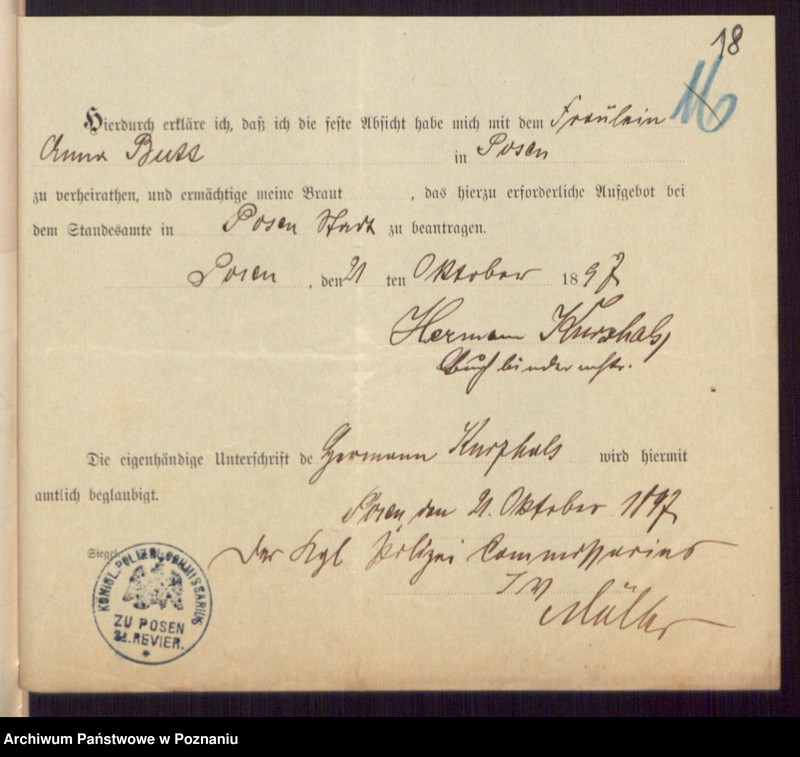 18
116
Hierdurch erkläre ich, daß ich die feste Absicht habe mich mit dem Fräulein
Anna Buss in Posen
zu verheirathen, und ermächtige meine Braut , das hierzu erforderliche Aufgebot bei
dem Standesamte in Posen Stadt zu beantragen.
Posen , den 21 ten Oktober 1897
Hermann Kurzhals,
Buchbindermstr.
Die eigenhändige Unterschrift de Hermann Kurzhals wird hiermit
amtlich beglaubigt.
Posen, den 21. Oktober 1897
Siegel. Der Kgl Polizei Commissarius
I V
Müller
KÖNIGL. POLIZEI-COMMISSARIUS
ZU POSEN
REVIER.
Archiwum Państwowe w Poznaniu